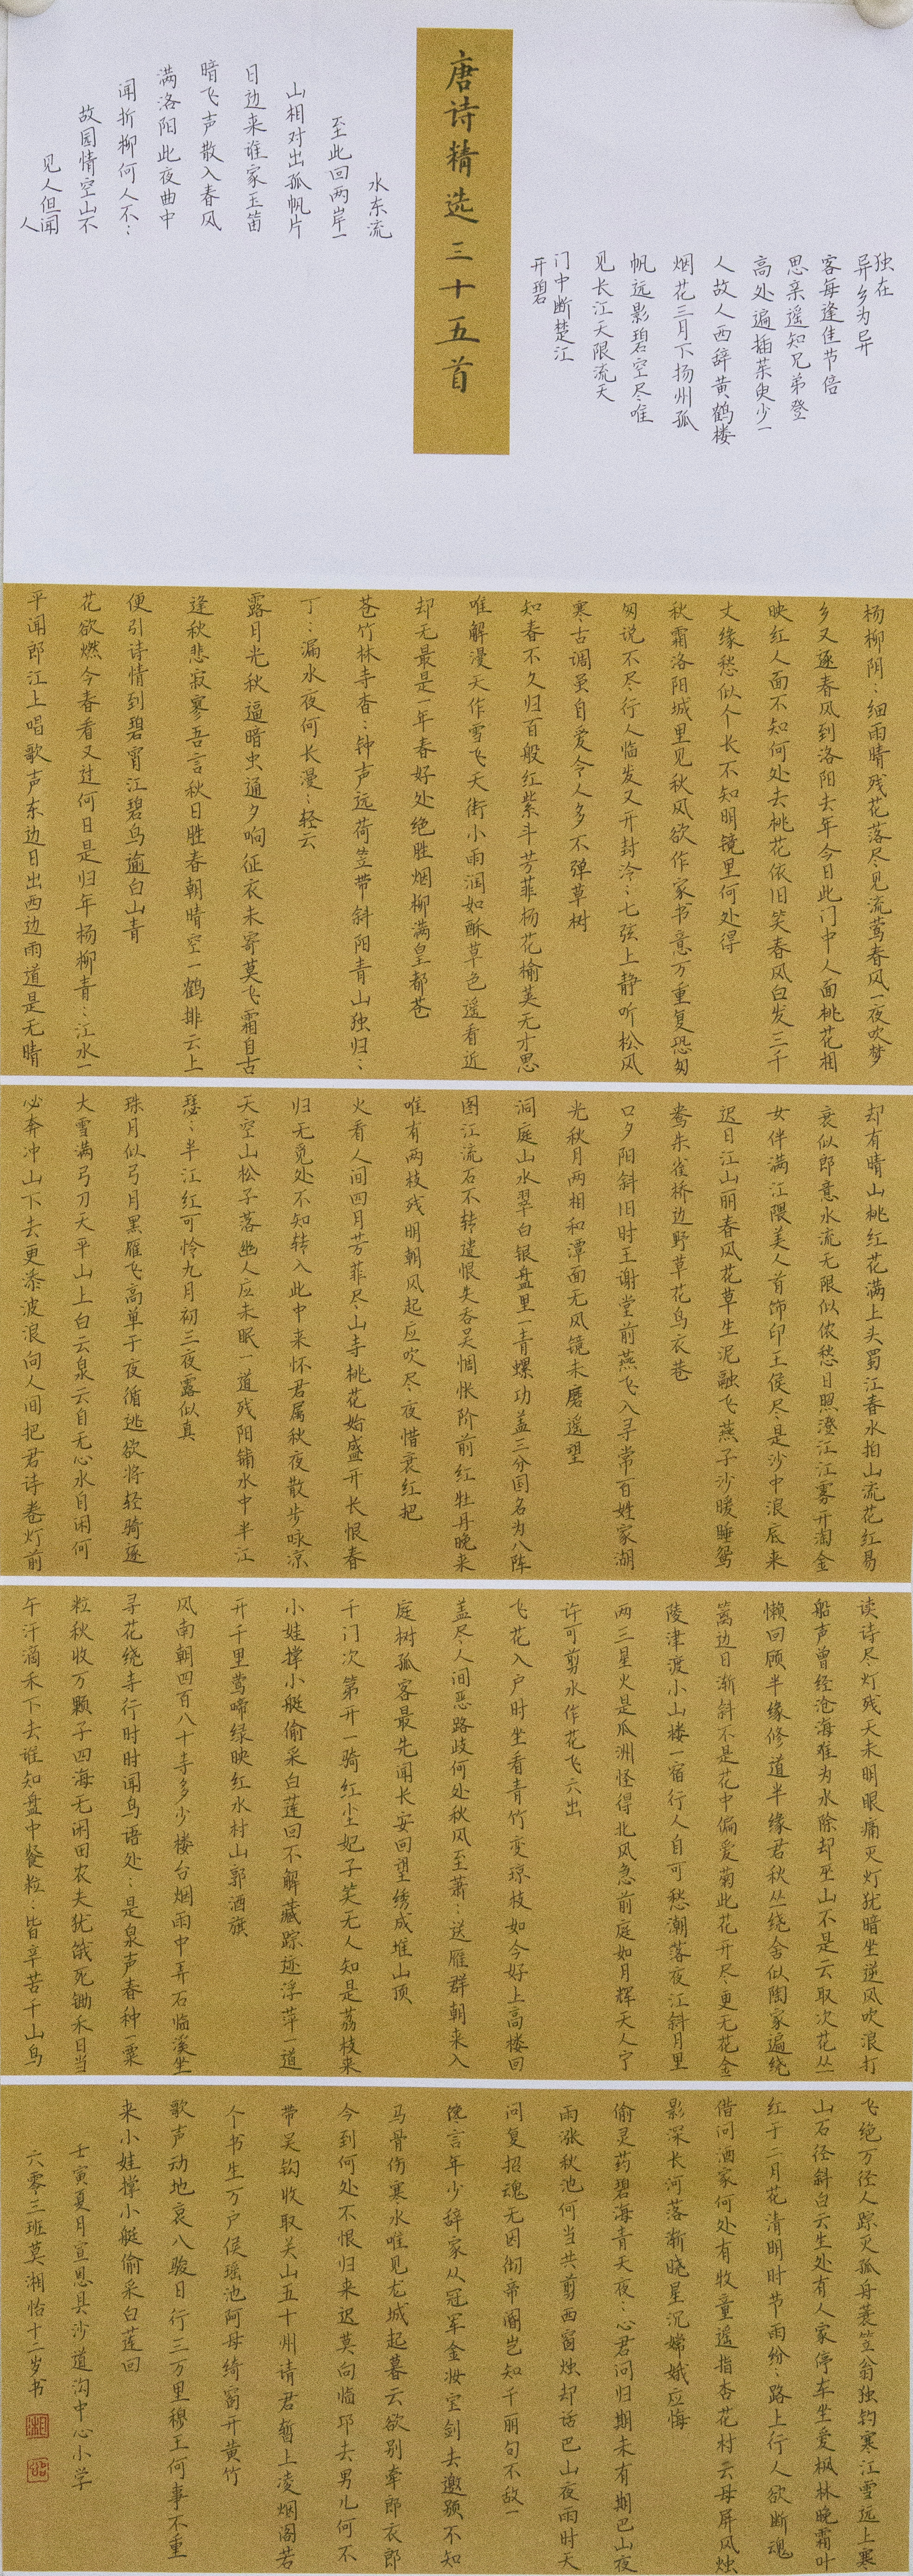 唐诗精选三十五首
独在
异乡为异
客每逢佳节倍
思亲遥知兄弟登
高处遍插茱臾少一
人故人西辞黄鹤楼
烟花三月下扬州孤
帆远影碧空尽唯
见长江天限流天
门中断楚江
开碧
水东流
至此回两岸一
山相对出孤帆片
日边来谁家玉笛
暗飞声散入春风
满洛阳此夜曲中
闻折柳何人不:
故园情空山不
见人但闻
人
杨柳阴:细雨晴残花落尽见流莺春风一夜吹梦
乡又逐春风到洛阳去年今日此门中人面桃花相
映红人面不知何处去桃花依旧笑春风白发三千
丈缘愁似个长不知明镜里何处得
秋霜洛阳城里见秋风欲作家书意万重复恐匆
匆说不尽行人临发又开封泠:七弦上静听松风
寒古调虽自爱令人多不弹草树
知春不久归百般红紫斗芳菲杨花榆荚无才思
唯解漫天作雪飞天街小雨润如酥草色遥看近
却无最是一年春好处绝胜烟柳满皇都苍
苍竹林寺杳:钟声远荷笠带斜阳青山独归:
丁:漏水夜何长漫:轻云
露月光秋逼暗虫通夕响征衣未寄莫飞霜自古
逢秋悲寂寥吾言秋日胜春朝晴空一鹤排云上
便引诗情到碧霄江碧鸟逾白山青
花欲燃今春看又过何日是归年杨柳青:江水一
平闻郎江上唱歌声东边日出西边雨道是无晴
却有晴山桃红花满上头蜀江春水拍山流花红易
衰似郎意水流无限似侬愁日照澄江江雾开淘金
女伴满江隈美人首饰印王侯尽是沙中浪底来
迟日江山丽春风花草生泥融飞燕子沙暖睡鸳
鸯朱雀桥边野草花乌衣巷
口夕阳斜旧时王谢堂前燕飞入寻常百姓家湖
光秋月两相和潭面无风镜未磨遥望
洞庭山水翠白银盘里一青螺功盖三分国名为八阵
图江流石不转遣恨失吞吴惆怅阶前红牡丹晚来
唯有两枝残明朝风起应吹尽夜惜衰红把
火看人间四月芳菲尽山寺桃花始盛开长恨春
归无觅处不知转入此中来怀君属秋夜散步咏凉
天空山松子落幽人应未眠一道残阳铺水中半江
瑟:半江红可怜九月初三夜露似真
珠月似弓月黑雁飞高单于夜循逃欲将轻骑逐
大雪满弓刀天平山上白云泉云自无心水自闲何
必奔冲山下去更添波浪向人间把君诗卷灯前
读诗尽灯残天未明眼痛灭灯犹暗坐逆风吹浪打
船声曾经沧海难为水除却巫山不是云取次花丛
懒回顾半缘修道半缘君秋丛绕舍似陶家遍绕
篱边日渐斜不是花中偏爱菊此花开尽更无花金
陵津渡小山楼一宿行人自可愁潮落夜江斜月里
两三星火是瓜洲怪得北风急前庭如月辉天人宁
许可剪水作花飞六出
飞花入户时坐看青竹变琼枝如今好上高楼回
盖尽人间恶路歧何处秋风至萧:送雁群朝来入
庭树孤客最先闻长安回望绣成堆山顶
千门次第开一骑红尘妃子笑无人知是荔枝来
小娃撑小艇偷采白莲回不解藏踪迹浮萍一道
开千里莺啼绿映红水村山郭酒旗
风南朝四百八十寺多少楼台烟雨中弄石临溪坐
寻花绕寺行时时闻鸟语处:是泉声春种一粟
粒秋收万颗子四海无闲田农夫犹饿死锄禾日当
午汗滴禾下去谁知盘中餐粒:皆辛苦千山鸟
飞绝万径人踪灭孤舟蓑笠翁独钓寒江雪远上寒
山石径斜白云生处有人家停车坐爱枫林晚霜叶
红于二月花清明时节雨纷:路上行人欲断魂
借问酒家何处有牧童遥指杏花村云母屏风烛
影深长河落渐晓星沉嫦娥应悔
偷灵药碧海青天夜:心君问归期未有期巴山夜
雨涨秋池何当共剪西窗烛却话巴山夜雨时天
问复招魂无因彻帝阍岂知千丽句不敌一
谗言年少辞家从冠军金妆宝剑去邀颈不知
马骨伤寒水唯见龙城起暮云欲别牵郎衣郎
今到何处不恨归来迟莫向临邛去男儿何不
带吴钩收取关山五十州请君暂上凌烟阁若
个书生万户侯瑶池阿母绮窗开黄竹
歌声动地哀八骏日行三万里穆王何事不重
来小娃撑小艇偷采白莲回
壬寅夏月宣恩县沙道沟中心小学
六零三班莫湘怡十二岁书